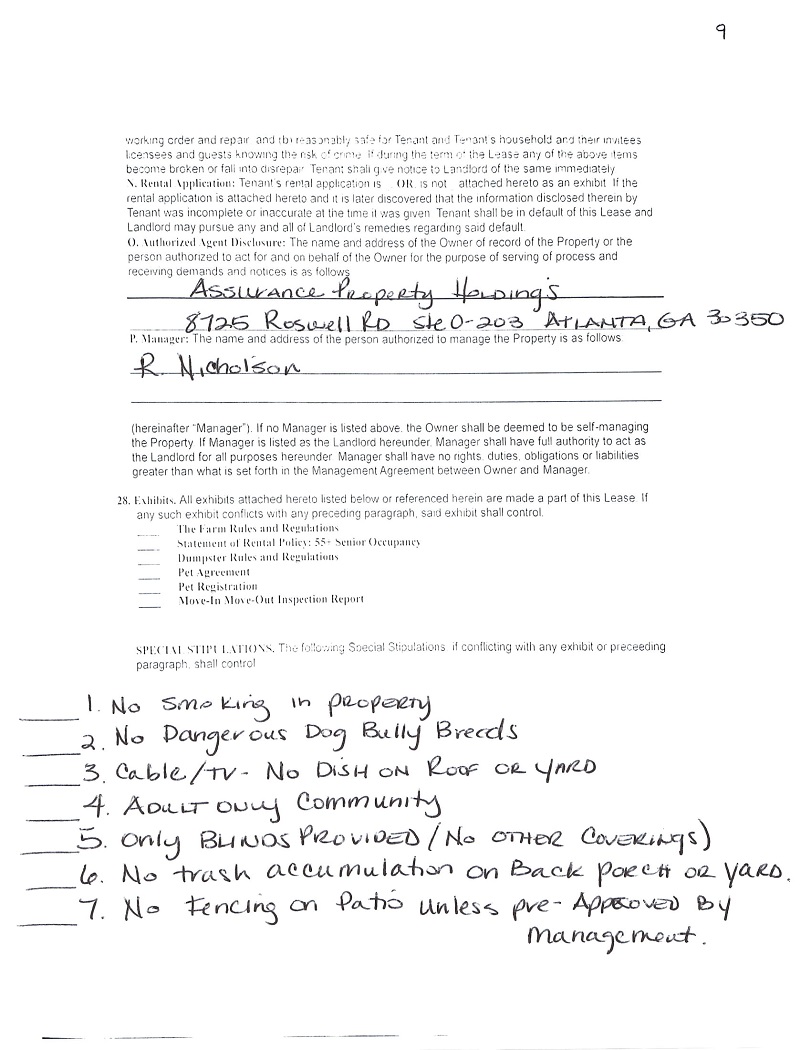 9
working order and repair and (b) reasonably safe for Tenant and Tenant's household and their invitees
licensees and guests knowing the risk of crime. If during the term of the Lease any of the above items
become broken or fall into disrepair Tenant shall give notice to Landlord of the same immediately
N. Rental Application: Tenant's rental application is OR is not attached hereto as an exhibit. If the
rental application is attached hereto and it is later discovered that the information disclosed therein by
Tenant was incomplete or inaccurate at the time it was given Tenant shall be in default of this Lease and
Landlord may pursue any and all of Landlord's remedies regarding said default.
O. Authorized Agent Disclosure: The name and address of the Owner of record of the Property or the
person authorized to act for and on behalf of the Owner for the purpose of serving of process and
receiving demands and notices is as follows
Assurance Property Holdings
8725 Roswell RD Ste O-203 ATLANTA, GA 30350
P. Manager: The name and address of the person authorized to manage the Property is as follows
R. Nicholson
(hereinafter "Manager"). If no Manager is listed above, the Owner shall be deemed to be self-managing
the Property. If Manager is listed as the Landlord hereunder, Manager shall have full authority to act as
the Landlord for all purposes hereunder. Manager shall have no rights, duties, obligations or liabilities
greater than what is set forth in the Management Agreement between Owner and Manager.
28. Exhibits. All exhibits attached hereto listed below or referenced herein are made a part of this Lease. If
any such exhibit conflicts with any preceding paragraph, said exhibit shall control.
The Farm Rules and Regulations
Statement of Rental Policy: 55+ Senior Occupancy
Dumpster Rules and Regulations
Pet Agreement
Pet Registration
Move-In Move-Out Inspection Report
SPECIAL STIPULATIONS. The following Special Stipulations, if conflicting with any exhibit or preceeding
paragraph, shall control
1. No Smoking in PROPERTY
2. No Dangerous Dog Bully Breeds
3. Cable/TV- No DISH ON ROOF OR YARD
4. ADULT ONLY Community
5. Only BLINDS PROVIDED / (No OTHER COVERINGS)
6. No trash accumulation on Back PORCH OR YARD.
7. No Fencing on Patio Unless pre-APPROVED By
Management.